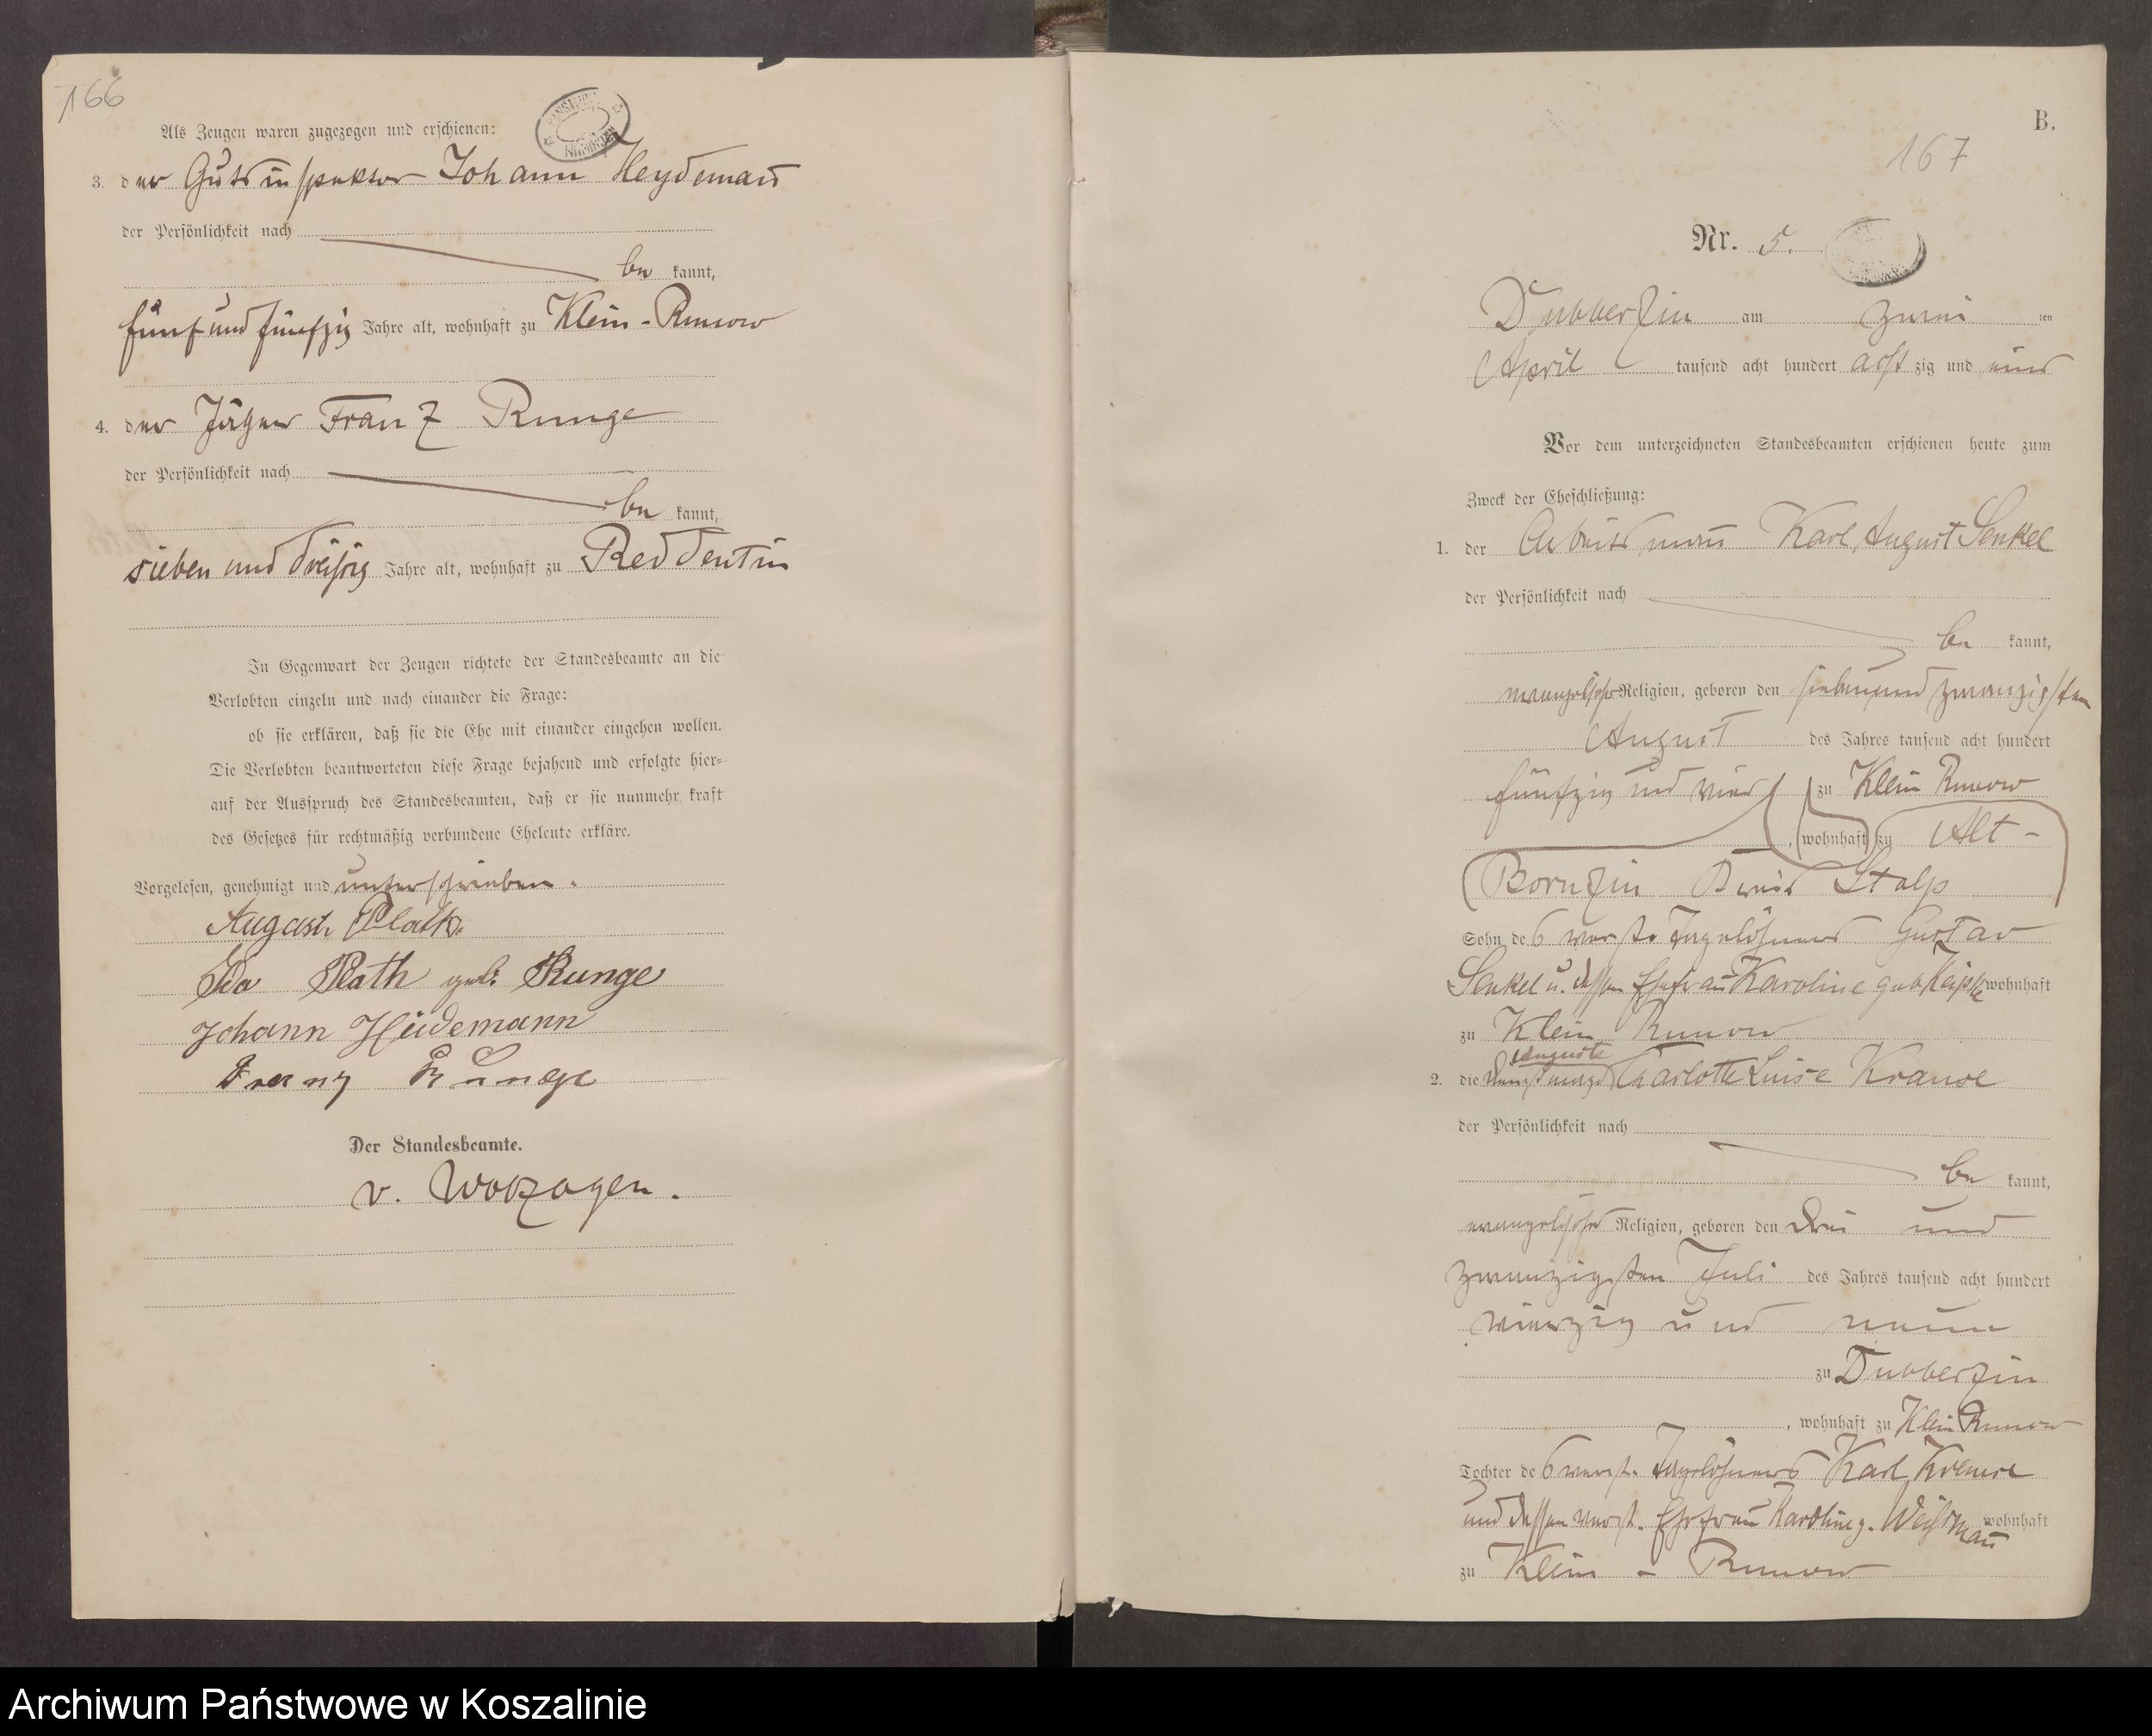 166
Als Zeugen waren zugezogen und erschienen:
3. der Gutsinspektor Johann Heydemañ
der Persönlichkeit nach
be kannt,
fünf und fünfzig Jahre alt, wohnhaft zu Klein-Runow
4. der Jäger Franz Runge
der Persönlichkeit nach
be kannt,
sieben und dreißig Jahre alt, wohnhaft zu Reddentin
In Gegenwart der Zeugen richtete der Standesbeamte an die
Verlobten einzeln und nach einander die Frage:
ob sie erklären, daß sie die Ehe mit einander eingehen wollen.
Die Verlobten beantworteten diese Frage bejahend und erfolgte hier-
auf der Ausspruch des Standesbeamten, daß er sie nunmehr kraft
des Gesetzes für rechtmäßig verbundene Eheleute erkläre.
Vorgelesen, genehmigt und unterschrieben.
August
Ida Plath geb. Runge
Johann Heidemann
Franz Runge
Der Standesbeamte.
v.
B.
167
Nr. 5.
Dubberzin am zwei ten
April tausend acht hundert acht zig und eins
Vor dem unterzeichneten Standesbeamten erschienen heute zum
Zweck der Eheschließung:
1. der Arbeitsmañ Karl August Senkel
der Persönlichkeit nach
be kannt,
evangelischer Religion, geboren den siebenundzwanzigsten
August des Jahres tausend acht hundert
fünfzig und vier zu Klein Runow
, wohnhaft zu Alt-
Bornzin Kreis Stolp
Sohn des verst. Tagelöhners Gustav
Senkel u. dessen Ehefrau Karoline geb wohnhaft
zu Klein Runow
Auguste
2. die Dienstmagd Charlotte Luise Krause
der Persönlichkeit nach
be kannt,
evangelischer Religion, geboren den drei und
zwanzigsten Juli des Jahres tausend acht hundert
vierzig und neun
zu Dubberzin
, wohnhaft zu Klein Runow
Tochter des verst. Tagelöhners Karl Krause
und dessen verst. Ehefrau Karoline g. Weißmañ wohnhaft
zu Klein-Runow
Archiwum Państwowe w Koszalinie